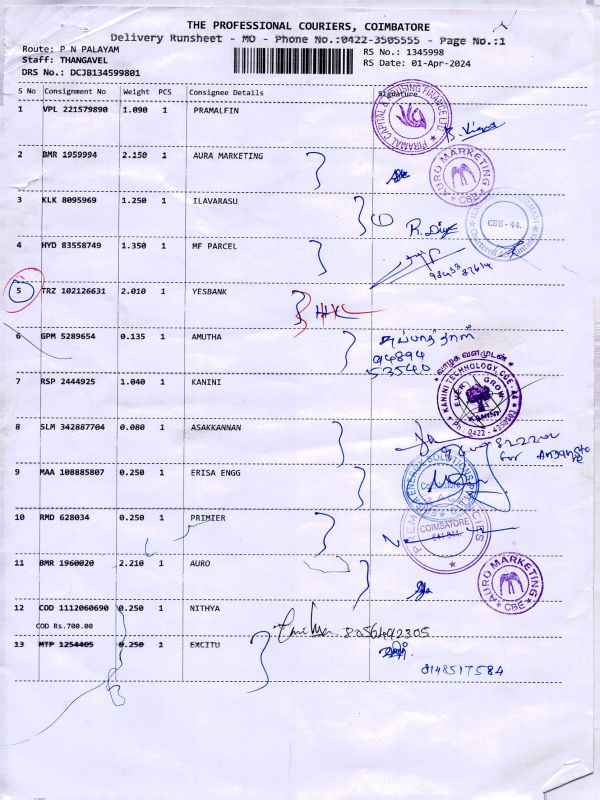 THE PROFESSIONAL COURIERS, COIMBATORE
Delivery Runsheet - MO - Phone No.:0422-3505555 - Page No.:1
Route: P N PALAYAM
Staff: THANGAVEL
DRS No.: DCJB134599801
RS No.: 1345998
RS Date: 01-Apr-2024
S No Consignment No Weight PCS Consignee Details Signature
1 VPL 221579890 1.090 1 PRAMALFIN
2 BMR 1959994 2.150 1 AURA MARKETING
AURO MARKETING CBE
3 KLK 8095969 1.250 1 ILAVARASU
CBE-44.
4 HYD 83558749 1.350 1 MF PARCEL
5 TRZ 102126631 2.010 1 YESBANK
6 GPM 5289654 0.135 1 AMUTHA
94894
53540
7 RSP 2444925 1.040 1 KANINI
வாழ்க வளமுடன்
KANINI TECHNOLOGY, CBE-44
EVER GROW
KANINI
8 SLM 342887704 0.080 1 ASAKKANNAN
for
9 MAA 108885807 0.250 1 ERISA ENGG
10 RMD 628034 0.250 1 PRIMIER
COIMBATORE
11 BMR 1960020 2.210 1 AURO
AURO MARKETING CBE
12 COD 1112060690 0.250 1 NITHYA
8056492305
COD Rs.700.00
13 MTP 1254405 0.250 1 EXCITU
8148517584